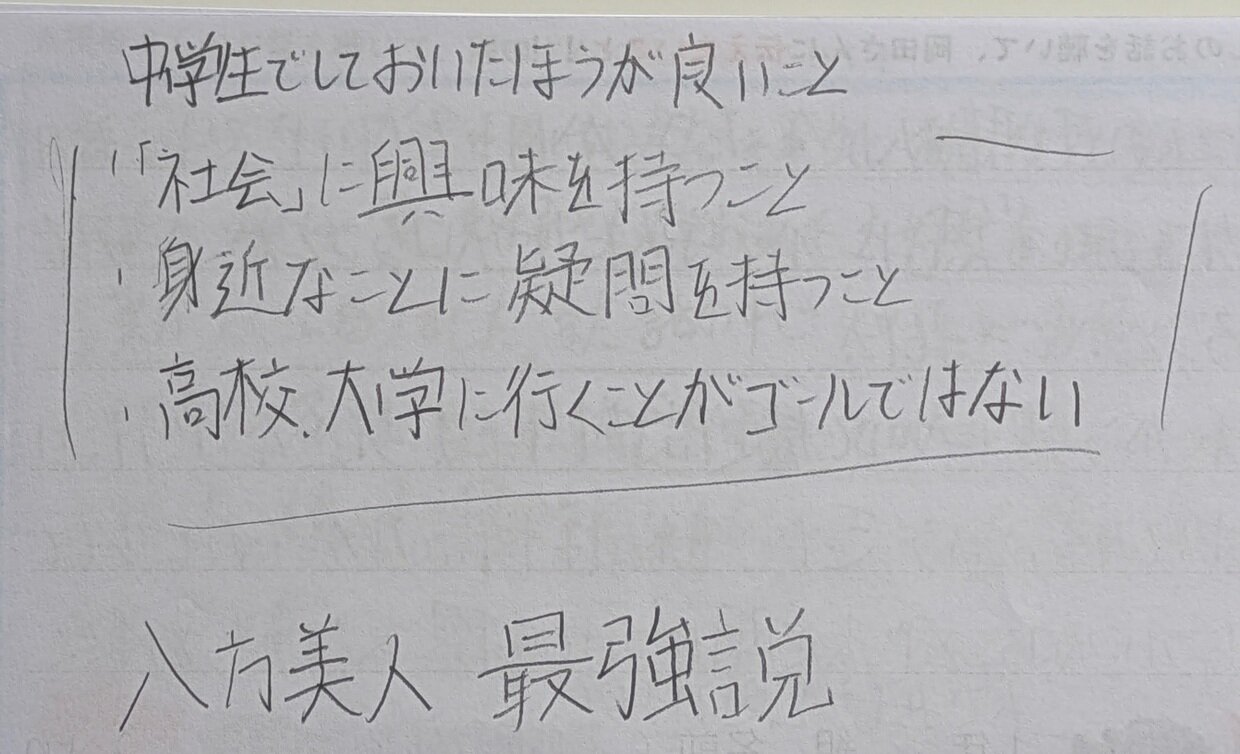 のお話を聴いて、岡田さんに伝え
中学生でしておいたほうが良いこと
・「社会」に興味を持つこと
・身近なことに疑問を持つこと
・高校、大学に行くことがゴールではない
八方美人 最強説